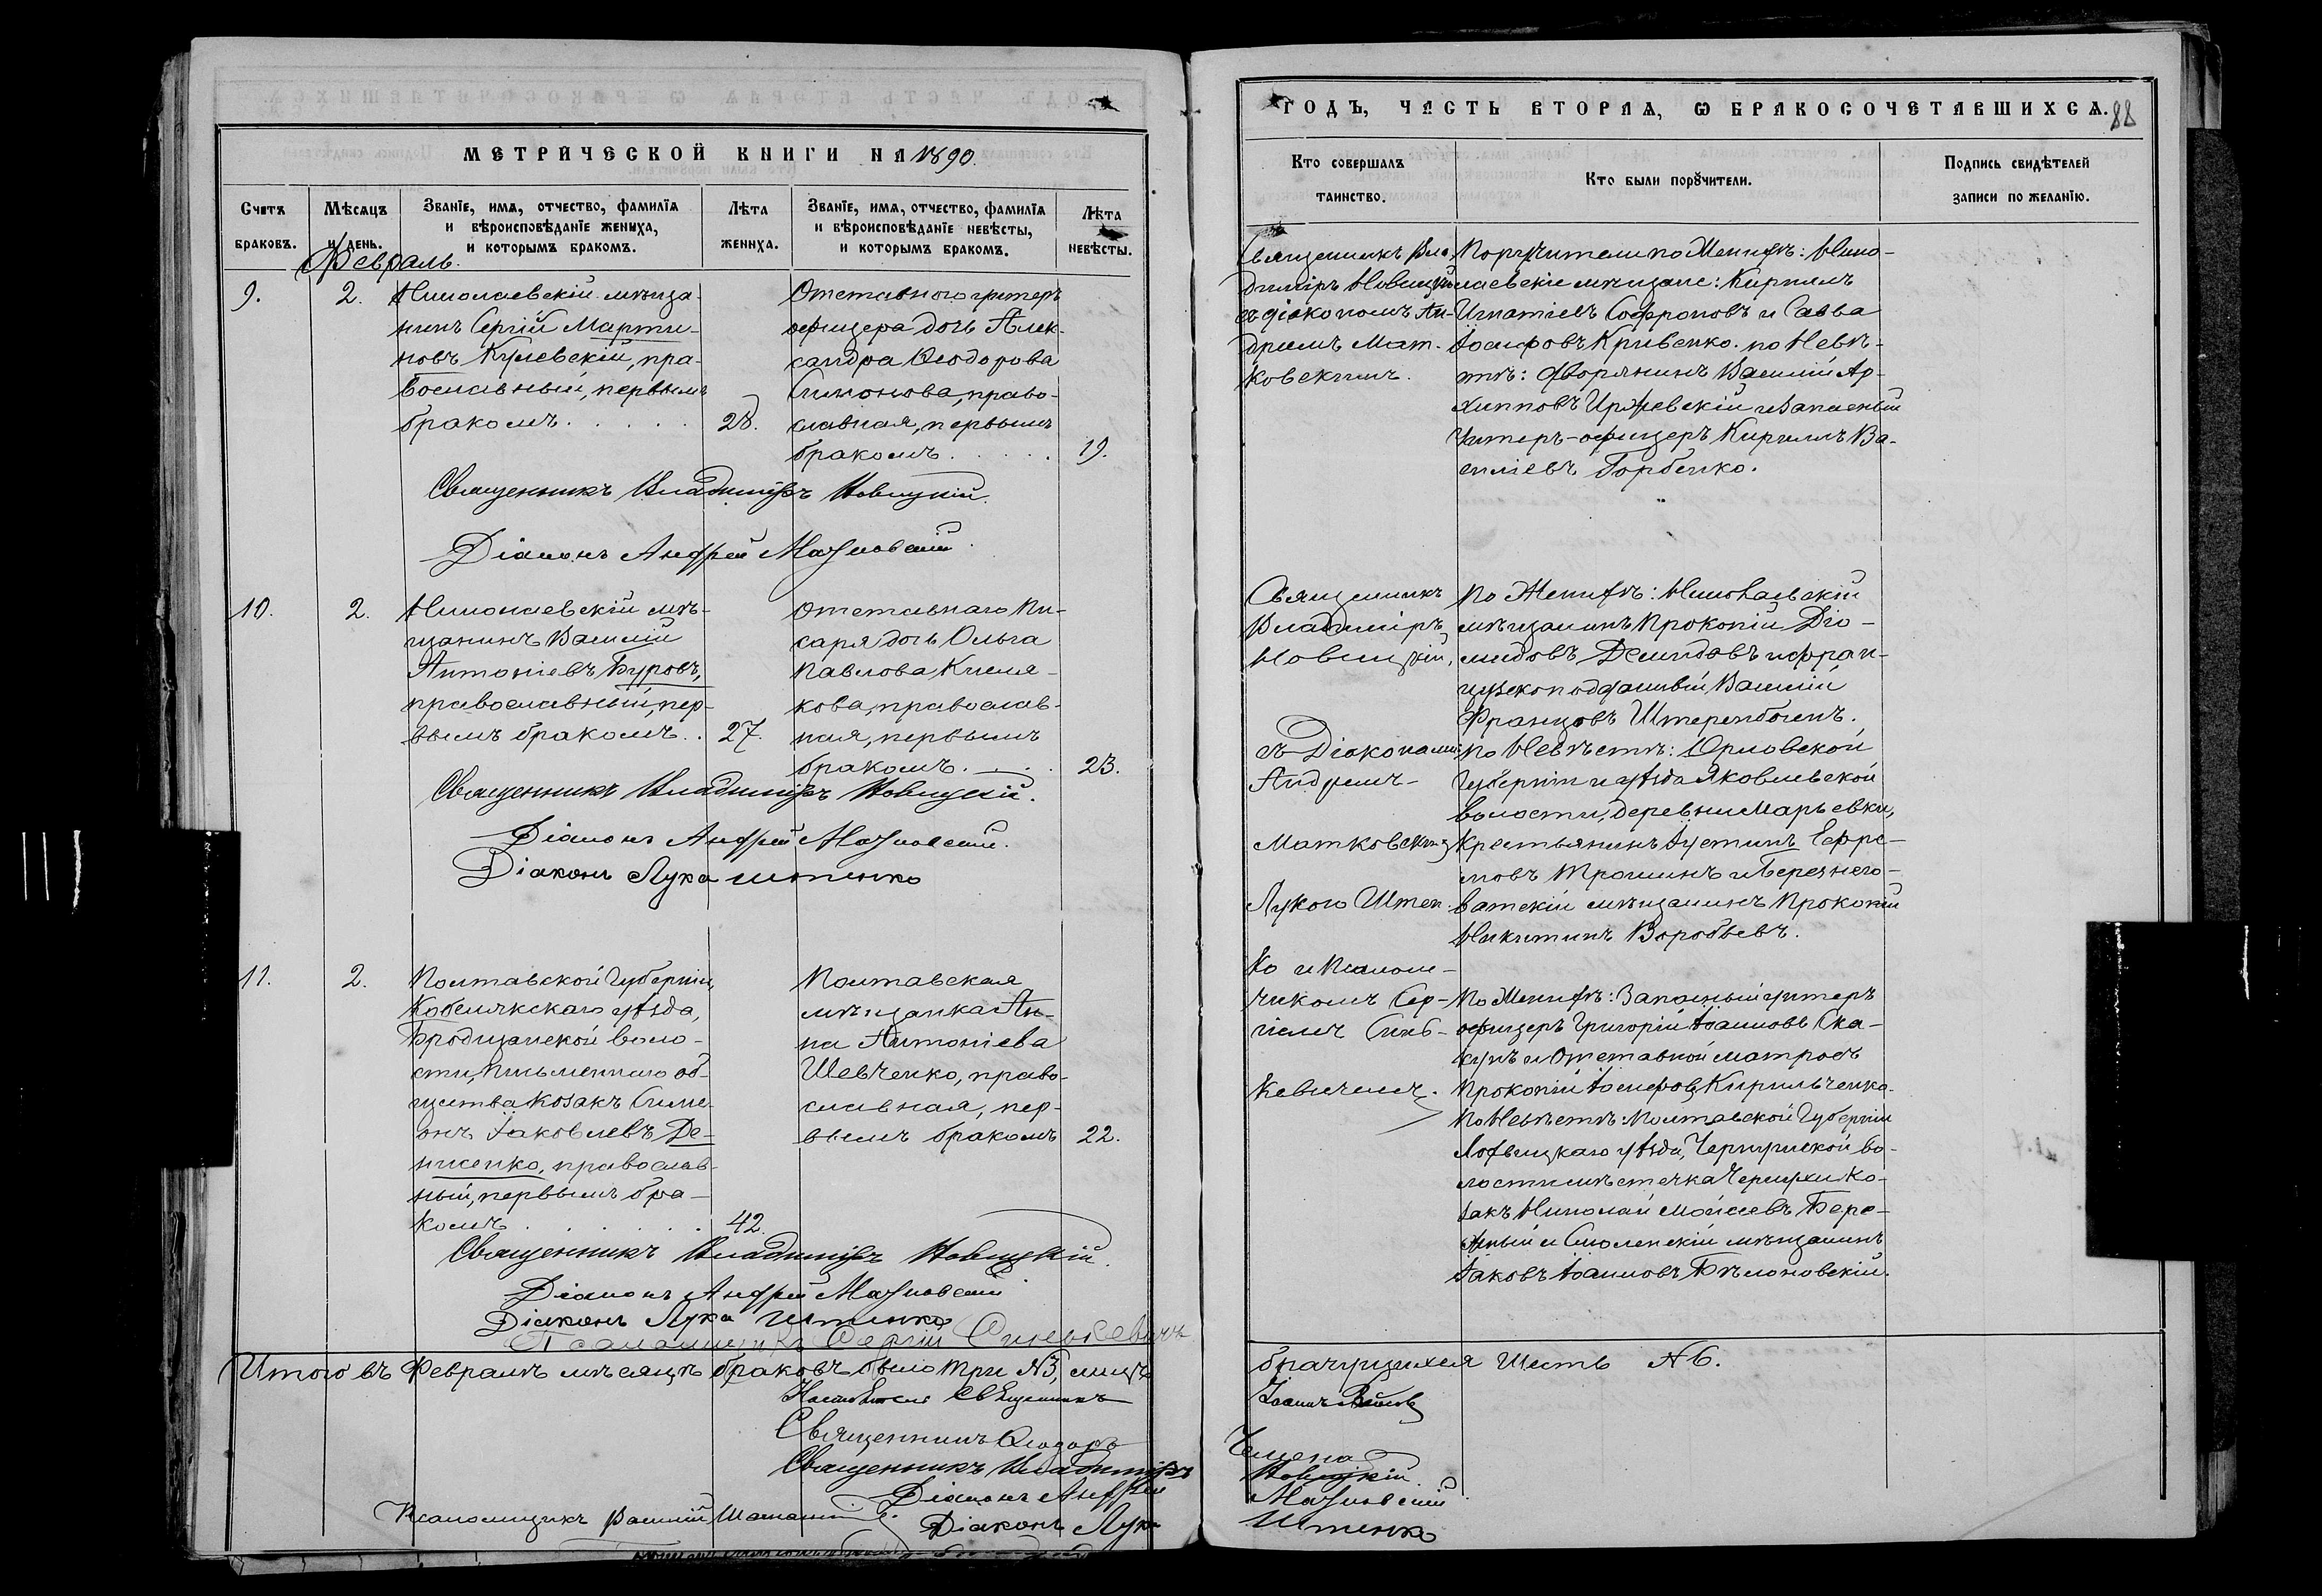 МЕТРИЧЕСКОЙ КНИГИ НА 1890.
Счетъ браковъ.
Мѣсяцъ и день.
Званіе, имя, отчество, фамилія
и вѣроисповѣданіе жениха,
и которымъ бракомъ.
Лѣта
жениха.
Званіе, имя, отчество, фамилія
и вѣроисповѣданіе невѣсты,
и которымъ бракомъ.
Лѣта
невѣсты.
Февраль.
9.
2.
Николаевскій мѣща-
нинъ Сергій Марти-
новъ Кулевскій, пра-
вославный, первымъ
бракомъ.
28.
Отставного унтеръ
офицера дочь Алек-
сандра Ѳеодорова
Симонова, право-
славная, первымъ
бракомъ.
19.
Священникъ Владиміръ Новицкій.
Діаконъ Андрей Матковскій.
10.
2.
Николаевскій мѣ-
щанинъ Василій
Антоніевъ Буровъ,
православный, пер-
вымъ бракомъ.
27.
Отставнаго Пи-
саря дочь Ольга
Павлова Кисля-
кова, православ-
ная, первымъ
бракомъ.
23.
Священникъ Владиміръ Новицкій.
Діаконъ Андрей Матковскій.
Діаконъ Лука Штенко
11.
2.
Полтавской Губерніи,
Кобелякскаго уѣзда,
Бродщанской воло-
сти, Письменнаго об-
щества козакъ Симе-
онъ Іаковлевъ Де-
нисенко, православ-
ный, первымъ бра-
комъ
42.
Полтавская
мѣщанка Ан-
на Антоніева
Шевченко, право-
славная, пер-
вымъ бракомъ
22.
Священникъ Владиміръ Новицкій.
Діаконъ Андрей Матковскій
Діаконъ Лука Штенко
Псаломщикъ Сергій Синькевичъ
Итого въ Февралѣ мѣсяцѣ браковъ было три №3, лицъ
Священникъ
Священникъ Ѳеодоръ
Священникъ Владиміръ
Діаконъ Андрей
Псаломщикъ Василій
Діаконъ Лука
ГОДЪ, ЧАСТЬ ВТОРАЯ, Ѡ БРАКОСОЧЕТАВШИХСЯ.
88
Кто совершалъ
таинство.
Кто были порꙋчители.
Подпись свидѣтелей
записи по желанію.
Священникъ Вла-
диміръ Новицкій
съ діакономъ Ан-
дреемъ Мат-
ковскимъ.
Поручители по Женихѣ: Нико-
лаевскіе мѣщане: Кириллъ
Игнатіевъ Софроновъ и Савва
Іосифовъ Кривенко. по Невѣ-
стѣ: дворянинъ Василій Ар-
хипповъ Иржевскій и Запасный
Унтеръ-офицеръ Кириллъ Ва-
силіевъ Горбенко.
Священникъ
Владиміръ
Новицкій,
съ Діаконами
Андреемъ
Матковскимъ
Лукою Штен-
ко и Псалом-
щикомъ Сер-
гіемъ Синь-
кевичемъ.
По Женихѣ: Николаевскій
мѣщанинъ Прокопій Діо-
мидовъ Демидовъ и фран-
цузскоподданный Василій
Францовъ Штеренбогенъ.
По Невѣстѣ: Орловской
Губерніи и уѣзда Яковлевской
волости, деревни Марьевки,
крестьянинъ Іустинъ Ефре-
мовъ Трошинъ и Березнего-
ватскій мѣщанинъ Прокопій
Никитинъ Воробьевъ.
По Женихѣ: Запасный унтеръ
офицеръ Григорій Іоанновъ Ска-
кунъ и Отставной матросъ
Прокопій Іосифовъ Кирильченко.
По Невѣстѣ Полтавской Губерніи
Лохвицкаго уѣзда, Чернухской во-
лости мѣстечка Чернухи Ко-
закъ Николай Моисеевъ Бере-
жный и Смоленскій мѣщанинъ
Іаковъ Іоанновъ Бѣлоновскій.
брачущихся шесть №6.
Іоаннъ
Чемена
Новицкій.
Матковскій
Штенко